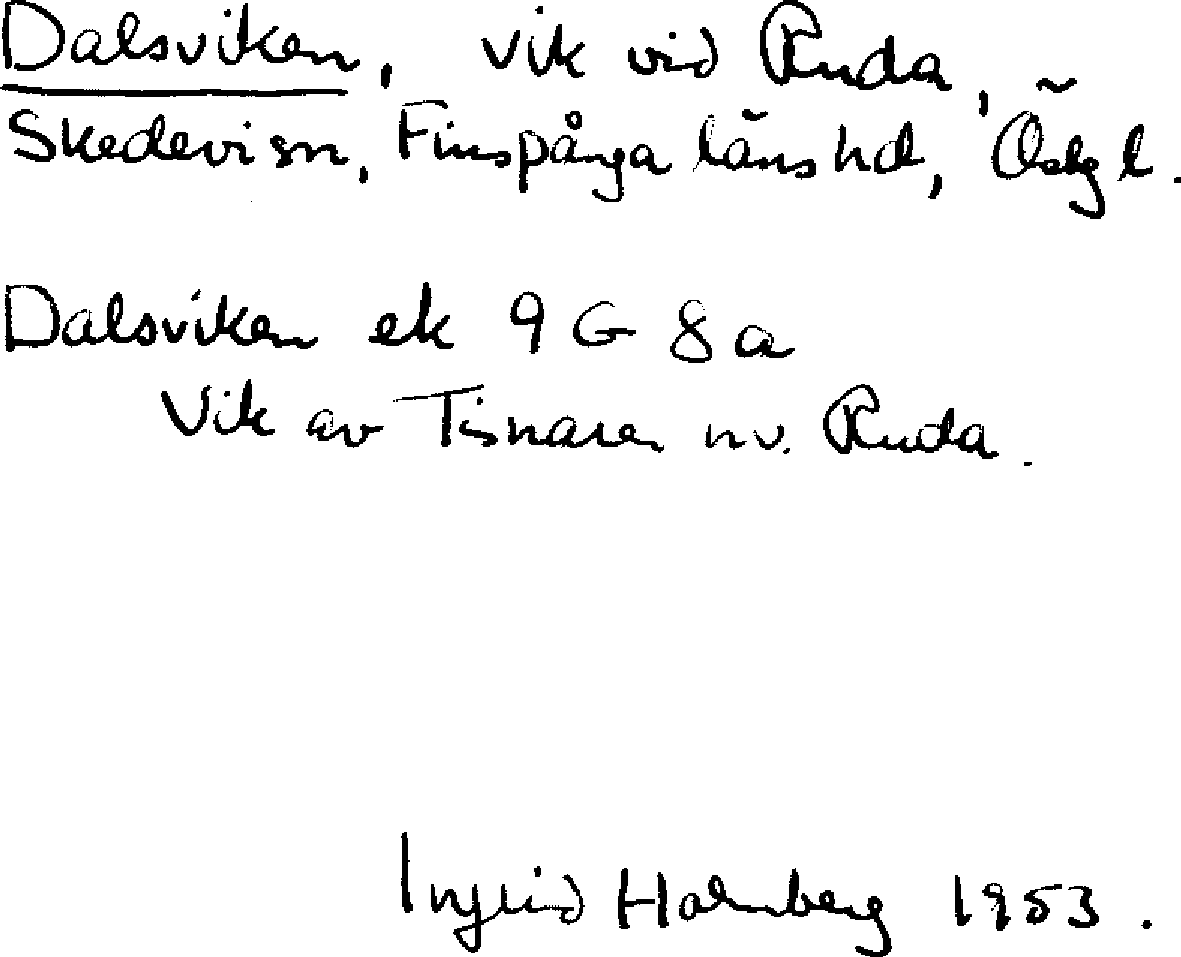 Dalsviken, vik vid Ruda,
Skedevi sn, Finspånga läns hd, Östgl.
Dalsviken ek 9 G 8 a
Vik av Tisnaren nv. Ruda.
Ingrid Holmberg 1953.